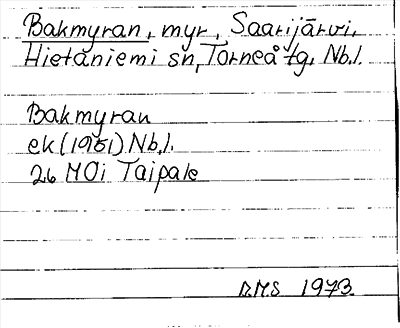 Bakmyran, myr, Saarijärvi,
Hietaniemi sn, Torneå tg, Nb.l.
Bakmyran
ek (1951) Nb.l.
26 MOi Taipale
D.M.S 1973.